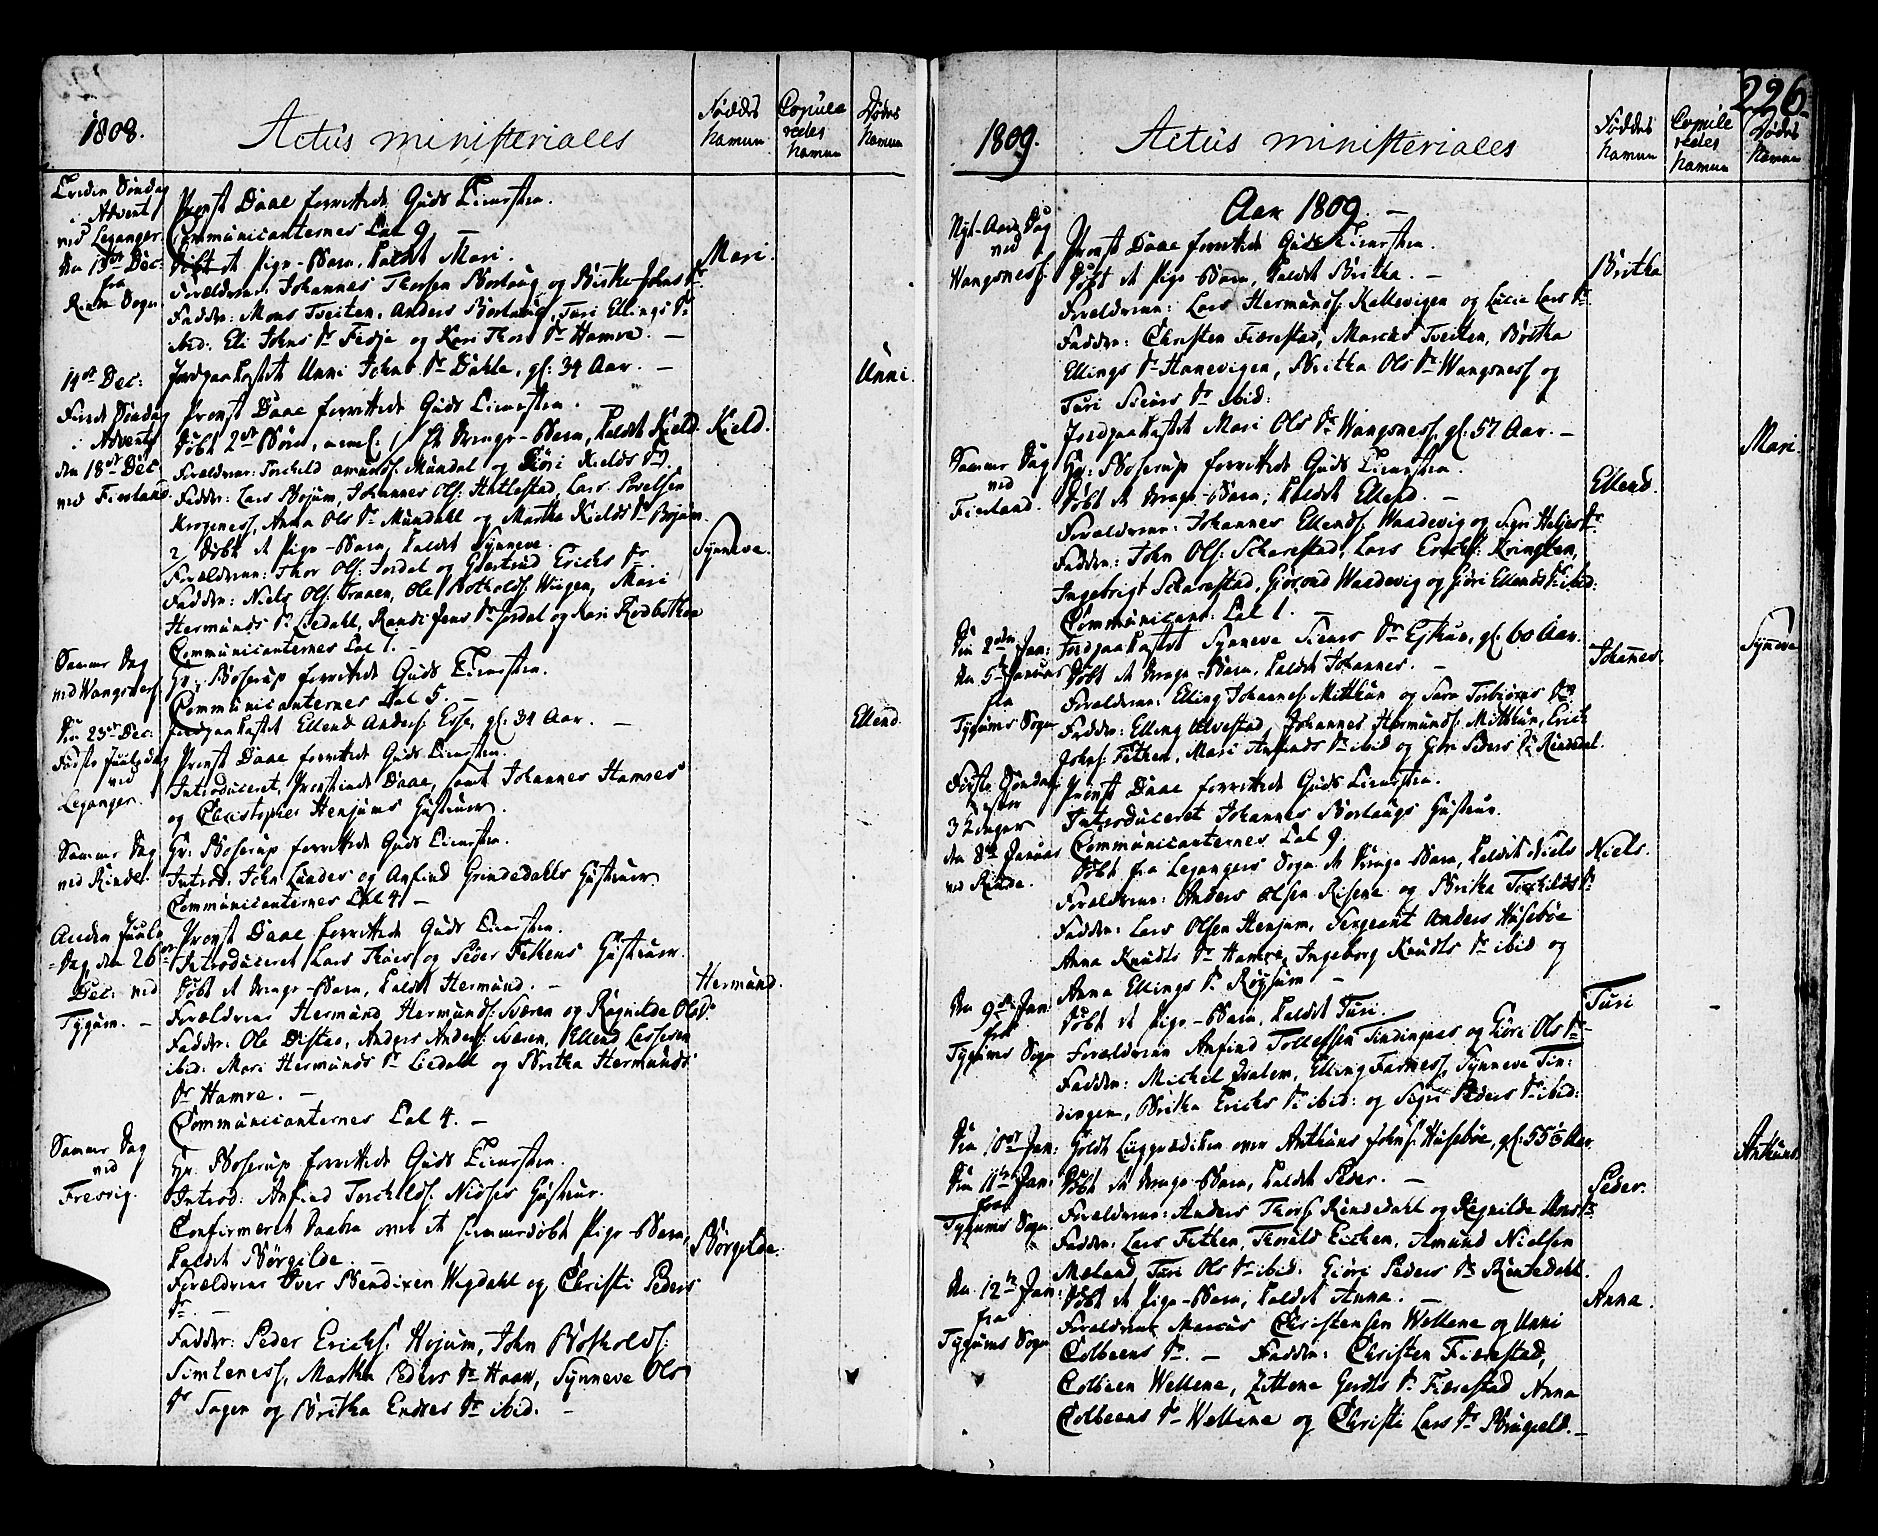 1808.
Actus ministeriales
Føddes Namen
Copuleredes Namen
Dødes Namen
Tredie Søndag i Advent ved Leganger
Provst Daae forrettede Guds Tieneste.
Communicanternes Tal 9.
Den 13de Dec: fra Rinde Sogn
Døbt et Pige-Barn, kaldet Mari.
Mari.
Forældrene: Johannes Thorsen Borlaug og Britha Johns Dr
Faddere: Mons Tveiten, Anders Borlaug, Turi Ellings Dr
ibid. Eli Johns Dr Fedje og Kari Thors Dr Hamre. —
14de Dec:
Jordpaakastet Unni Johns Dr Dahle, gl: 34 Aar. —
Unni.
Fierde Søndag i Advent den 18de Dec ved Fierland
Provst Daae forrettede Guds Tieneste.
Døbt 2de Børn, neml. 1/ Et Drenge-Barn, kaldet Kield.
Kield.
Forældrene: Torchild Amunds: Mundal og Giøri Kields D.
Faddere: Lars Bojum, Johannes Ols: Hatlestad, Lars Povelsen
Krogeness, Anna Ols Dr Mundahl og Martha Kields Dr Bojum.
2/ Døbt et Pige-Barn, kaldet Synneve.
Synneve.
Forældrene: Thor Ols: Jordal og Giertrud Erichs Dr.
Faddere: Niels Ols: Graaen, Ole Botholds: Wiigen, Mari
Hermunds Dr Liedahl, Randi Jens Dr Jordal og Kari Rødbotten
Communicanternes Tal 1. —
Samme Dag ved Wangsness.
Hr: Boserup forrettede Guds Tieneste.
Communicanternes Tal 5. —
Den 23de Dec:
Jordpaakastet Ellend Anders: Esse, gl: 34 Aar. —
Ellend.
Første Juuledag ved Leganger.
Provst Daae forrettede Guds Tieneste.
Introduceret, Provstinde Daae, samt Johannes Hamres
og Christopher Henjums Hustruer.
Samme Dag ved Rinde.
Hr: Boserup forrettede Guds Tieneste.
Introd: John Lunder og Anfind Grindedahls Hustruer.
Communicanternes Tal 4. —
Anden Juule-Dag, den 26de Dec: ved Tygum. —
Provst Daae forrettede Guds Tieneste.
Introduceret Lars Thues og Peder Fethens Hustruer.
Døbt et Drenge-Barn, kaldet Hermund. —
Hermund.
Forældrene Hermund Hermunds: Sværen og Ragnilde Ols Dr.
Faddere: Ole Distad, Anders Anders: Sværen, Ellend Lassesen
ibid: Mari Hermunds Dr Liedahl og Britha Hermunds
Dr Hamre. —
Communicanternes Tal 4. —
Samme Dag ved Fresvig.
Hr. Boserup forrettede Guds Tieneste.
Introd: Anfind Torchilds: Nissess Hustrue.
Confirmeret Daaben over et hiemmedøbt Pige-Barn,
kaldet Børgilde. —
Børgilde.
Forældrene Iver Bendixen Wegdahl og Christi Peders
Dr. —
Faddere: Peder Erichs: Hojum, John Botholds:
Simleness, Martha Peders Dr Haav, Synneve Ols
Dr Tagen og Britha Endres Dr ibid. —
226.
1809.
Actus ministeriales
Føddes Namen
Copuleredes Namen
Dødes Namen
Aar 1809. —
Nyt-Aars Dag ved Wangsness.
Provst Daae forrettede Guds Tieneste.
Døbt et Pige-Barn, kaldet Britha. —
Britha
Forældrene: Lars Hermunds: Kallevigen og Lucie Lars Dr.
Faddere: Christen Fiærestad, Marcus Tveiten, Britha
Ellings Dr Hanevigen, Britha Ols Dr Wangsness og
Turi Siurs Dr ibid:
Jordpaakastet Mari Ols Dr Wangsness, gl. 57 Aar. —
Mari.
Samme Dag ved Fierland.
Hr: Boserup forrettede Guds Tieneste.
Døbt et Drenge-Barn, kaldet Ellend. —
Ellend.
Forældrene: Johannes Ellends: Waadevig og Sigri Heljes Dr.
Faddere: John Ols: Scharestad, Lars Erichs: Kringlen,
Ingebrigt Scharestad, Giörond Waadevig og Giøri Ellends Dr ibid:
Communicant: Tal 1. —
Den 2den Jan:
Jordpaakastet Synneve Siurs Dr Eithun, gl. 60 Aar.
Synneve
Den 5te Januar fra Tygums Sogn
Døbt et Drenge-Barn, kaldet Johannes. —
Johannes.
Forældrene: Elling Johannes: Mitthun og Sara Torbiørns Dr
Faddere: Elling Ulvestad, Johannes Hermunds: Mitthun, Erich
Johns: Fethen, Mari Anfinds Dr ibid og Giøri Peders Dr Rindedal.
Første Søndag efter 3 Konger den 8de Januar ved Rinde.
Provst Daae forrettede Guds Tieneste.
Introduceret Johannes Borlaugs Hustrue.
Communicanternes Tal 9.
Døbt fra Legangers Sogn et Drenge-Barn, kaldet Niels
Niels.
Forældrene: Anders Olsen Risene og Britha Torchilds Dr
Faddere: Lars Olsen Henjum, Sergeant Anders Husebøe
Anna Knudts Dr Hamre, Ingeborg Knudts Dr ibid og
Anna Ellings Dr Røysum —
Den 9de Jan: fra Tygums Sogn
Døbt et Pige-Barn, kaldet Turi.
Turi
Forældrene Anfind Tollefsen Tindingens og Giøri Ols Dr
Faddere: Michel Isalem, Elling Farness, Synneve Tin-
dingen, Britha Erichs Dr ibid: og Sigri Peders Dr ibid:
Den 10de Jan:
Holdt Liigprædiken over Anthuns Johns: Husebøe, gl: 55½ Aar
Anthuns
Den 11te Jan: fra Tygums Sogn
Døbt et Drenge-Barn, kaldet Peder. —
Peder.
Forældrene: Anders Thors: Rindedahl og Ragnilde Mons Dr
Faddere: Lars Fethen, Thorald Eichen, Amund Nielsen
Mæland, Turi Ols Dr ibid. Giøri Peders Dr Rindedahl.
Den 12te Jan: fra Tygums Sogn
Døbt et Pige-Barn, kaldet Anna. —
Anna.
Forældrene Marcus Christensen Wellene og Unni
Colbeens Dr. — Faddere: Christen Fiærestad,
Colbeen Wellene, Zittene Gerdts Dr Fiærestad Anna
Colbeens Dr Wellene og Christi Lars Dr Brugeeld. —